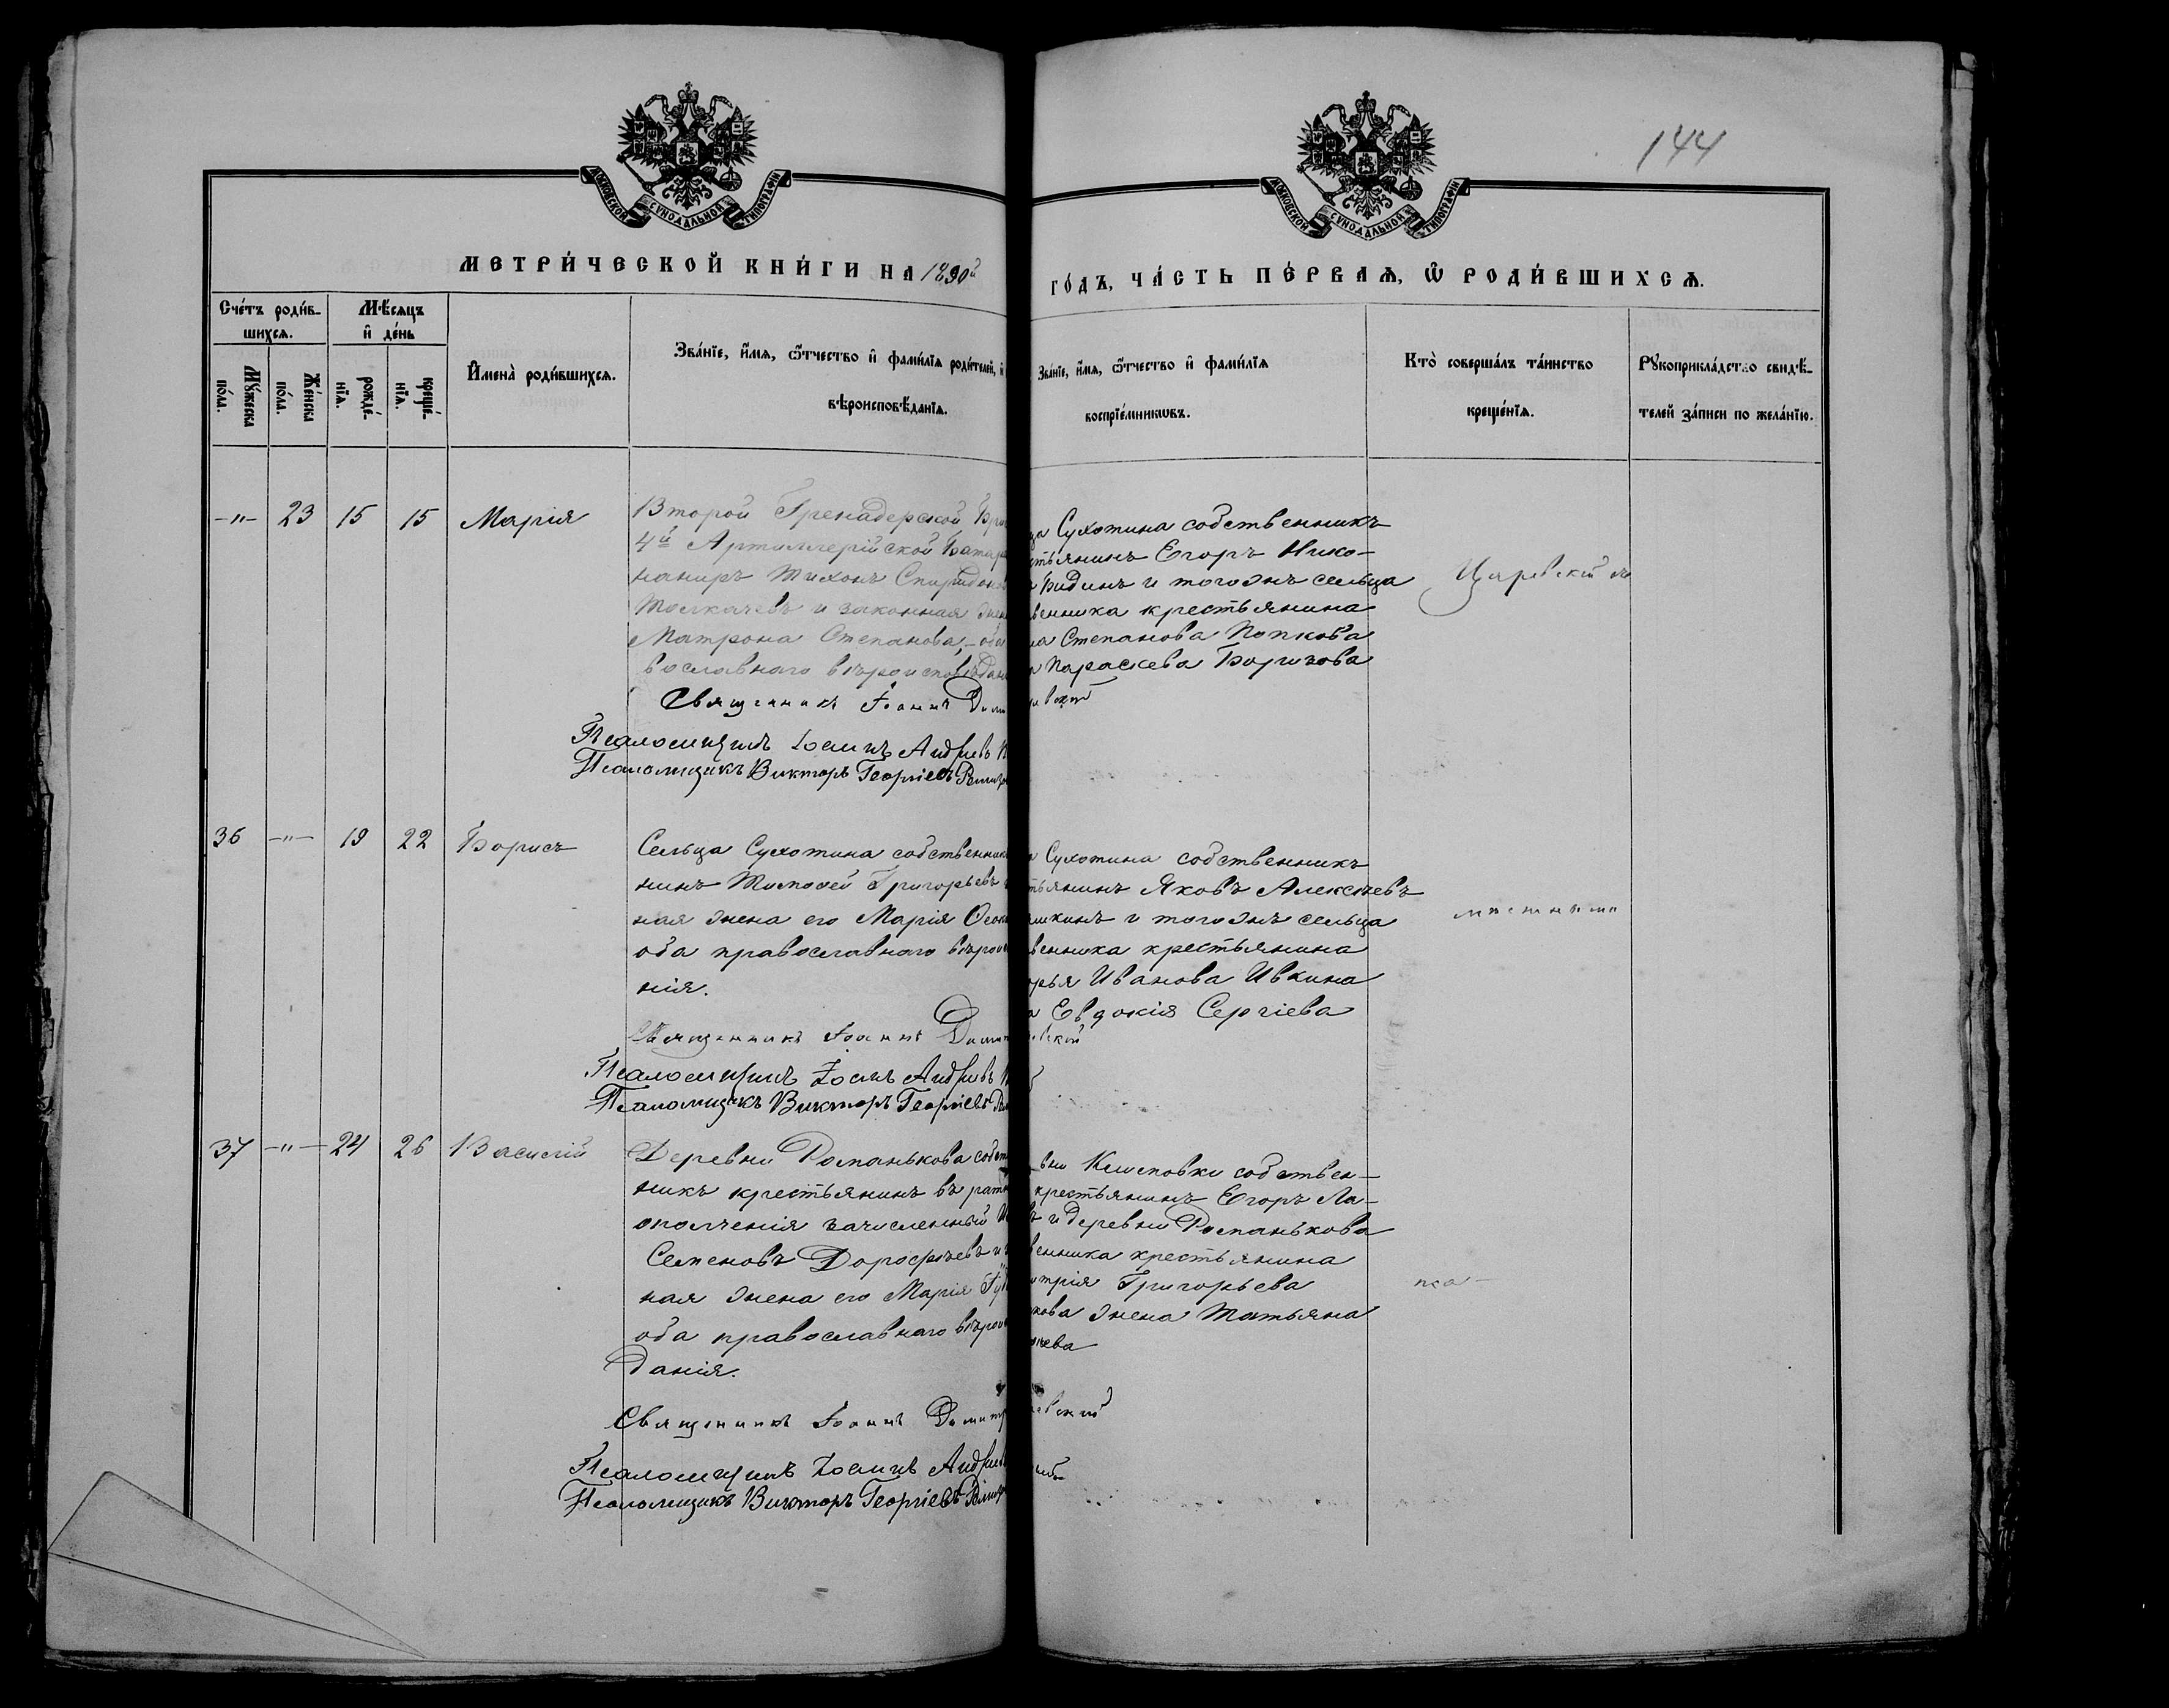 МОСКОВСКОЙ СУНОДАЛЬНОЙ ТИПОГРАФІИ
МОСКОВСКОЙ СУНОДАЛЬНОЙ ТИПОГРАФІИ
144
МЕТРИ́ЧЕСКОЙ КНИ́ГИ НА 1890й
ГО́ДЪ, ЧА́СТЬ ПЕ́РВАѦ, Ѽ РОДИ́ВШИХСѦ.
Сче́тъ роди́в-
шихсѧ.
Мѣ́сѧцъ
и҆ де́нь
Мꙋ́жеска
по́ла.
Же́нска
по́ла.
рожде́-
нїѧ.
креще́-
нїѧ.
И҆мена̀ роди́вшихсѧ.
Зва́нїе, и҆́мѧ, ѻ҆́тчество и҆ фами́лїѧ роди́телей, и҆
вѣроисповѣ́данїѧ.
Зва́нїе, и҆́мѧ, ѻ҆́тчество и҆ фами́лїѧ
воспрїе́мникѡвъ.
Кто̀ соверша́лъ та́инство
креще́нїѧ.
Рꙋкоприкла́дство свидѣ́-
телей за́писи по жела́нїю.
-"- 23 15 15 Марія
Второй Гренадерской Бри
4й Артиллерійской Батаре
наниръ Тихонъ Спиридонов
Толкачевъ и законная жен
Матрона Степанова, оба
вославнаго вѣроисповѣдан
Священникъ Іоаннъ Дим
Псаломщикъ Іоаннъ Андреевъ
Псаломщикъ Викторъ Георгіевъ
Сухотина собственникъ
стьянинъ Егоръ Нико-
Бидинъ и тогожъ сельца
венника крестьянина
на Степанова Попкова
Параскева Борисова
Царевскій
36 -"- 19 22 Борисъ
Сельца Сухотина собственник
нинъ Тимофей Григорьевъ
ная жена его Марія
оба православнаго вѣроис
нія.
Священникъ Іоаннъ Дими
Псаломщикъ Іоаннъ Андреевъ
Псаломщикъ Викторъ Георгіевъ
Сухотина собственникъ
тьянинъ Яковъ Алексѣевъ
шкинъ и тогожъ сельца
венника крестьянина
орья Иванова Ивкина
Евдокія Сергіева
37 -"- 24 26 Василій
Деревни Романькова собст
никъ крестьянинъ въ рат
ополченія зачисленный
Семеновъ Дорофѣевъ и
ная жена его Марія
оба православнаго вѣрои
данія.
Священникъ Іоаннъ Димитр
Псаломщикъ Іоаннъ Андреев
Псаломщикъ Викторъ Георгіевъ
вни собствен-
крестьянинъ Егоръ Ла-
и деревни Романькова
венника крестьянина
итрія Григорьева
кова жена Татьяна